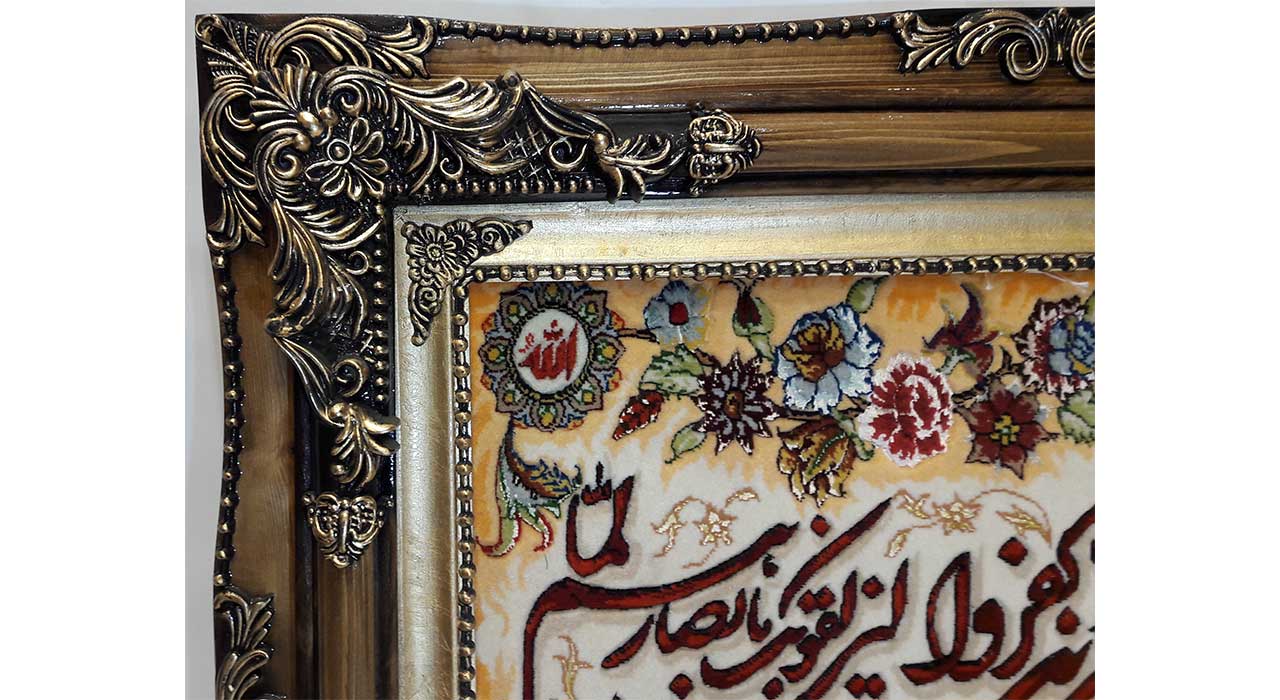 الله
کفروا لیزلقونک بابصارهم لما